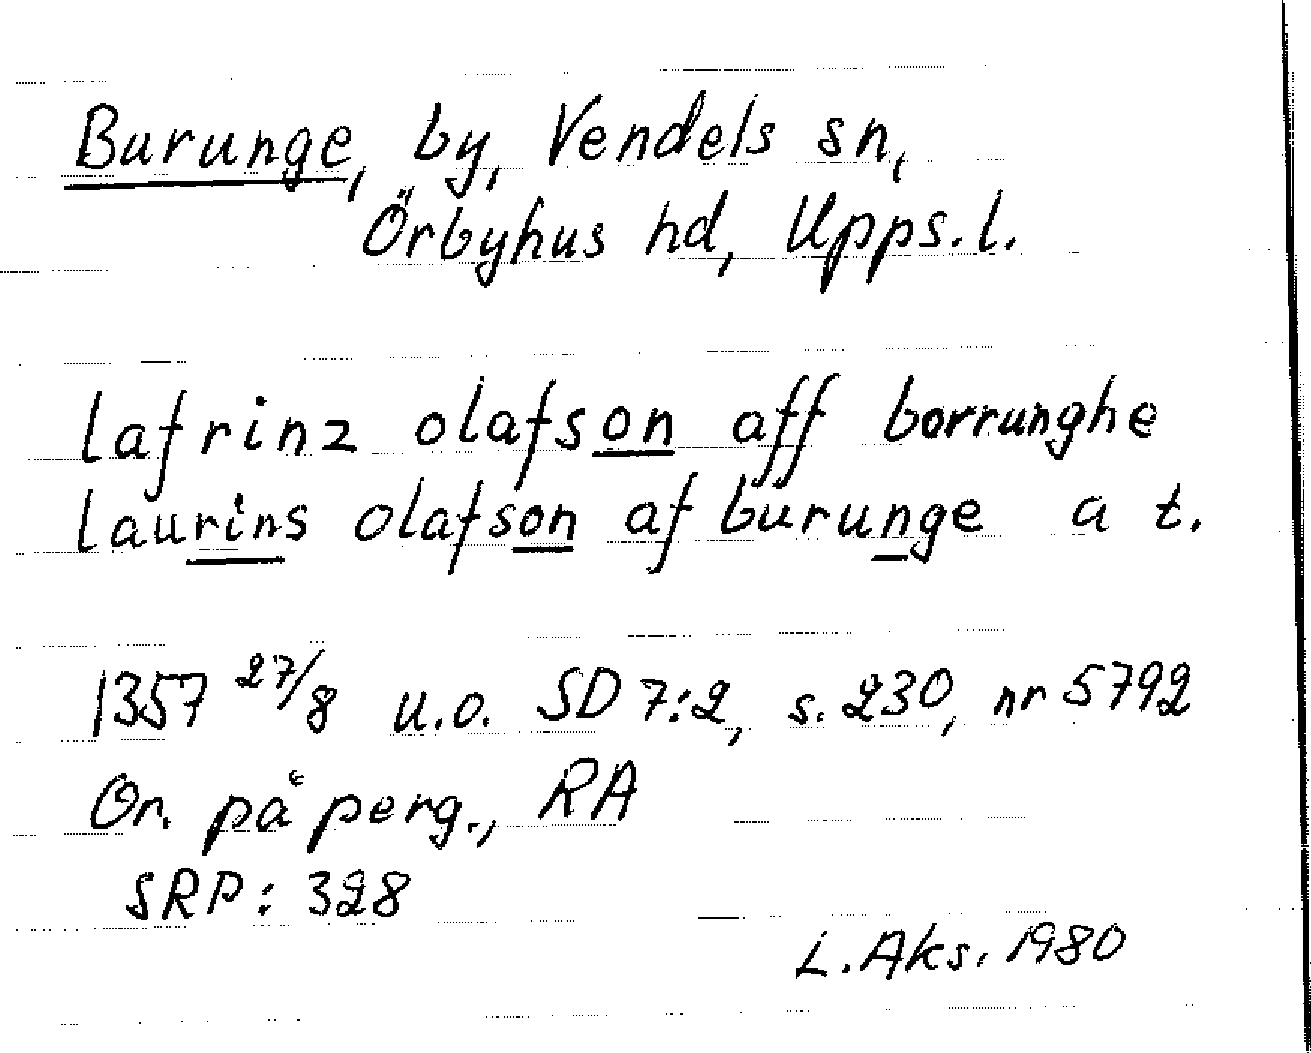 Burunge, by, Vendels sn,
Örbyhus hd, Upps. l.
lafrinz olafson aff borrunghe
laurins olafson af burunge a t.
1357 27/8 u.o. SD 7:2, s. 230, nr 5792
Or. på perg., RA
SRP: 328
L. Aks. 1980